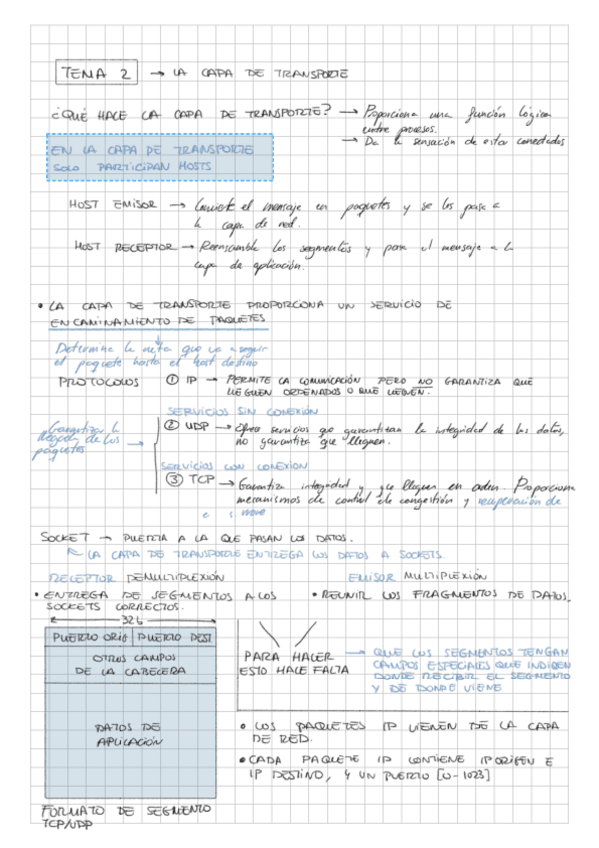 TEMA 2 → LA CAPA DE TRANSPORTE
¿QUÉ HACE LA CAPA DE TRANSPORTE? → Proporciona una función lógica
entre procesos.
→ Da la sensación de estar conectados
EN LA CAPA DE TRANSPORTE
SOLO PARTICIPAN HOSTS
HOST EMISOR → el mensaje en paquetes y se los pasa a
la capa de red.
HOST RECEPTOR → Reensambla los segmentos y pasa el mensaje a la
capa de aplicación.
• LA CAPA DE TRANSPORTE PROPORCIONA UN SERVICIO DE
ENCAMINAMIENTO DE PAQUETES
Determina la ruta que va a seguir
el paquete hasta el host destino
PROTOCOLOS ① IP → PERMITE LA COMUNICACIÓN PERO NO GARANTIZA QUE
LLEGUEN ORDENADOS O QUE LLEGUEN.
SERVICIOS SIN CONEXIÓN
Garantiza la
llegada de los
paquetes →
② UDP → Ofrece servicios que garantizan la integridad de los datos,
no garantiza que lleguen.
SERVICIOS CON CONEXION
③ TCP → Garantiza integridad y que lleguen en orden. Proporciona
mecanismos de control de congestión y recuperación de
SOCKET → PUERTA A LA QUE PASAN LOS DATOS.
LA CAPA DE TRANSPORTE ENTREGA LOS DATOS A SOCKETS.
RECEPTOR DEMULTIPLEXIÓN
• ENTREGA DE SEGMENTOS A LOS
SOCKETS CORRECTOS.
EMISOR MULTIPLEXIÓN
• REUNIR LOS FRAGMENTOS DE DATOS,
32b
PUERTO ORIG PUERTO DEST
OTROS CAMPOS
DE LA CABECERA
DATOS DE
APLICACIÓN
FORMATO DE SEGMENTO
TCP/UDP
PARA HACER
ESTO HACE FALTA
→ QUE LOS SEGMENTOS TENGAN
CAMPOS ESPECIALES QUE INDIQUEN
DONDE RECIBIR EL SEGMENTO
Y DE DONDE VIENE
• LOS PAQUETES IP VIENEN DE LA CAPA
DE RED.
• CADA PAQUETE IP CONTIENE IP ORIGEN E
IP DESTINO, Y UN PUERTO [0-1023]